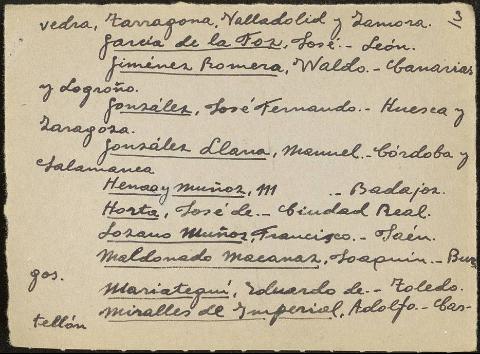 3
vedra, Tarragona, Valladolid y Zamora.
García de la Foz, José.- León.
Giménez Romera, Waldo.- Canarias
y Logroño.
González, José Fernando.- Huesca y
Zaragoza.
González Llana, Manuel.- Córdoba y
Salamanca
Henao y Muñoz, M .- Badajoz.
Horta, José de.- Ciudad Real.
Lozano Muñoz, Francisco.- Jaén.
Maldonado Macanaz, Joaquín.- Bur
gos.
Mariategui, Eduardo de.- Toledo.
Miralles de Imperial, Adolfo.- Cas-
tellón